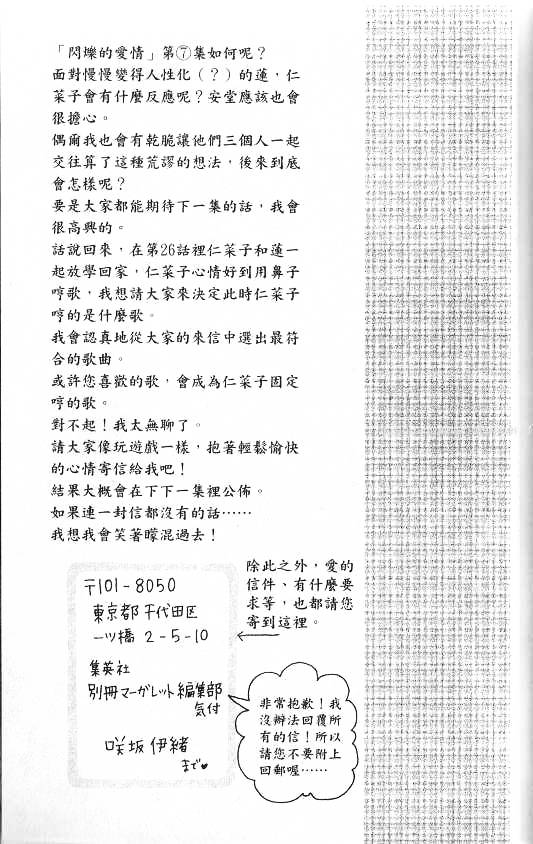 「閃爍的愛情」第⑦集如何呢？
面對慢慢變得人性化（？）的蓮，仁
菜子會有什麼反應呢？安堂應該也會
很擔心。
偶爾我也會有乾脆讓他們三個人一起
交往算了這種荒謬的想法，後來到底
會怎樣呢？
要是大家都能期待下一集的話，我會
很高興的。
話說回來，在第26話裡仁菜子和蓮一
起放學回家，仁菜子心情好到用鼻子
哼歌，我想請大家來決定此時仁菜子
哼的是什麼歌。
我會認真地從大家的來信中選出最符
合的歌曲。
或許您喜歡的歌，會成為仁菜子固定
哼的歌。
對不起！我太無聊了。
請大家像玩遊戲一樣，抱著輕鬆愉快
的心情寄信給我吧！
結果大概會在下下一集裡公佈。
如果連一封信都沒有的話……
我想我會笑著矇混過去！
除此之外，愛的
信件、有什麼要
求等，也都請您
寄到這裡。
〒101-8050
東京都千代田区
一ツ橋 2-5-10
集英社
別冊マーガレット編集部
気付
咲坂伊緒
まで♥
非常抱歉！我
沒辦法回覆所
有的信！所以
請您不要附上
回郵喔……